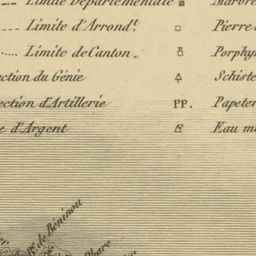 Limite Départementale
Limite d'Arrond.t
Pierre
Limite de Canton.
Porphy
ection du Génie
Schiste
ection d'Artillerie
PP. Papeter
e d'Argent
Eau m
de Béninou
Phare